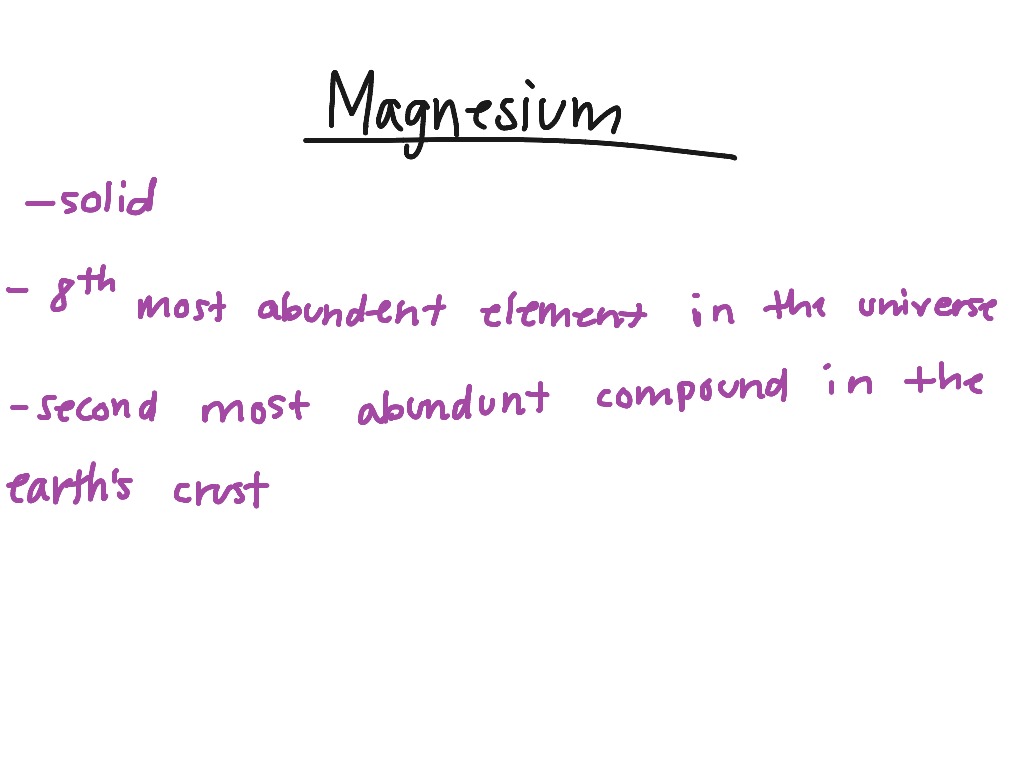 Magnesium
- solid
- 8th most abundent element in the universe
- second most abundunt compound in the
earth's crust